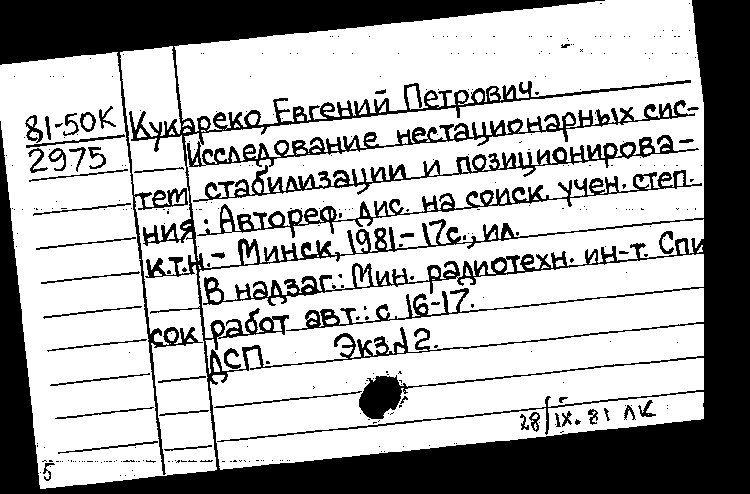 81-50К Кукареко, Евгений Петрович.
2975 Исследование нестационарных сис-
тем стабилизации и позиционирова-
ния: Автореф. дис. на соиск. учен. степ.
к.т.н.- Минск, 1981.- 17с., ил.
В надзаг.: Мин. радиотехн. ин-т. Спи
сок работ авт.: с. 16-17.
ДСП. Экз.№2.
28/IX.81 ЛК
5